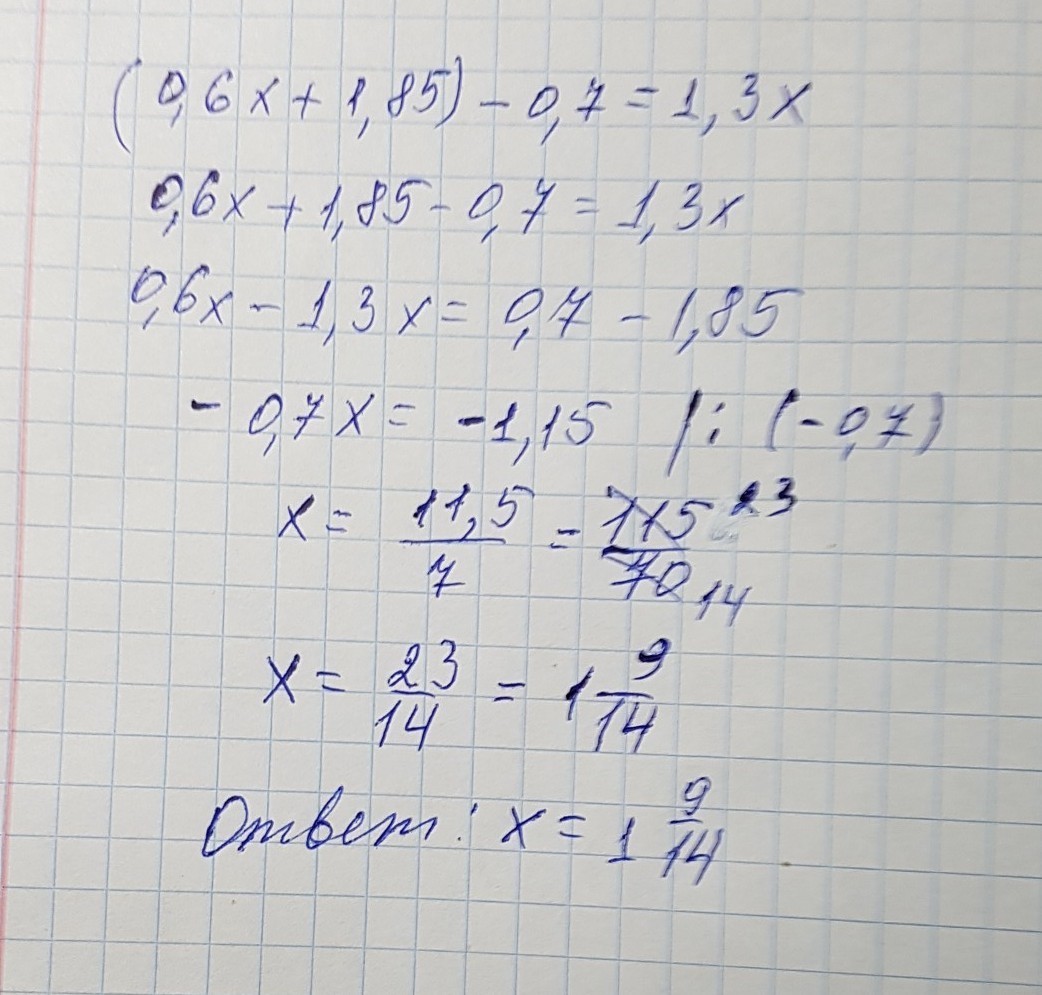 (0,6x + 1,85) - 0,7 = 1,3x
0,6x + 1,85 - 0,7 = 1,3x
0,6x - 1,3x = 0,7 - 1,85
- 0,7x = -1,15 |: (-0,7)
x = 11,5/7 = 115/70 23/14
x = 23/14 = 1 9/14
Ответ: x = 1 9/14